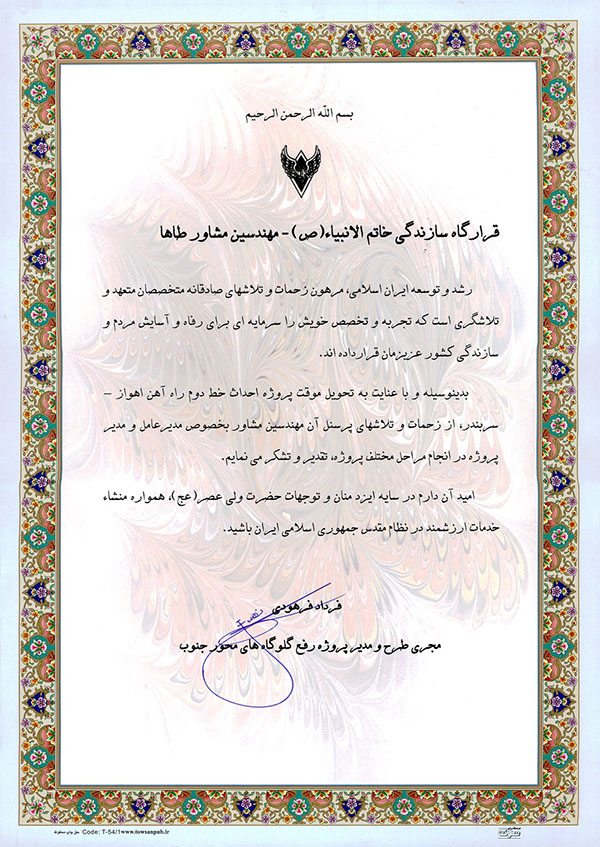 بسم الله الرحمن الرحیم
قرارگاه سازندگی خاتم الانبیاء(ص) - مهندسین مشاور طاها
رشد و توسعه ایران اسلامی، مرهون زحمات و تلاشهای صادقانه متخصصان متعهد و
تلاشگری است که تجربه و تخصص خویش را سرمایه ای برای رفاه و آسایش مردم و
سازندگی کشور عزیزمان قرارداده اند.
بدینوسیله و با عنایت به تحویل موقت پروژه احداث خط دوم راه آهن اهواز –
سربندر، از زحمات و تلاشهای پرسنل آن مهندسین مشاور بخصوص مدیرعامل و مدیر
پروژه در انجام مراحل مختلف پروژه، تقدیر و تشکر می نمایم.
امید آن دارم در سایه ایزد منان و توجهات حضرت ولی عصر(عج)، همواره منشاء
خدمات ارزشمند در نظام مقدس جمهوری اسلامی ایران باشید.
فرداد فرهودی
مجری طرح و مدیر پروژه رفع گلوگاه های محور جنوب
حق چاپ محفوظ Code: T-54/1 www.tawsanpub.ir